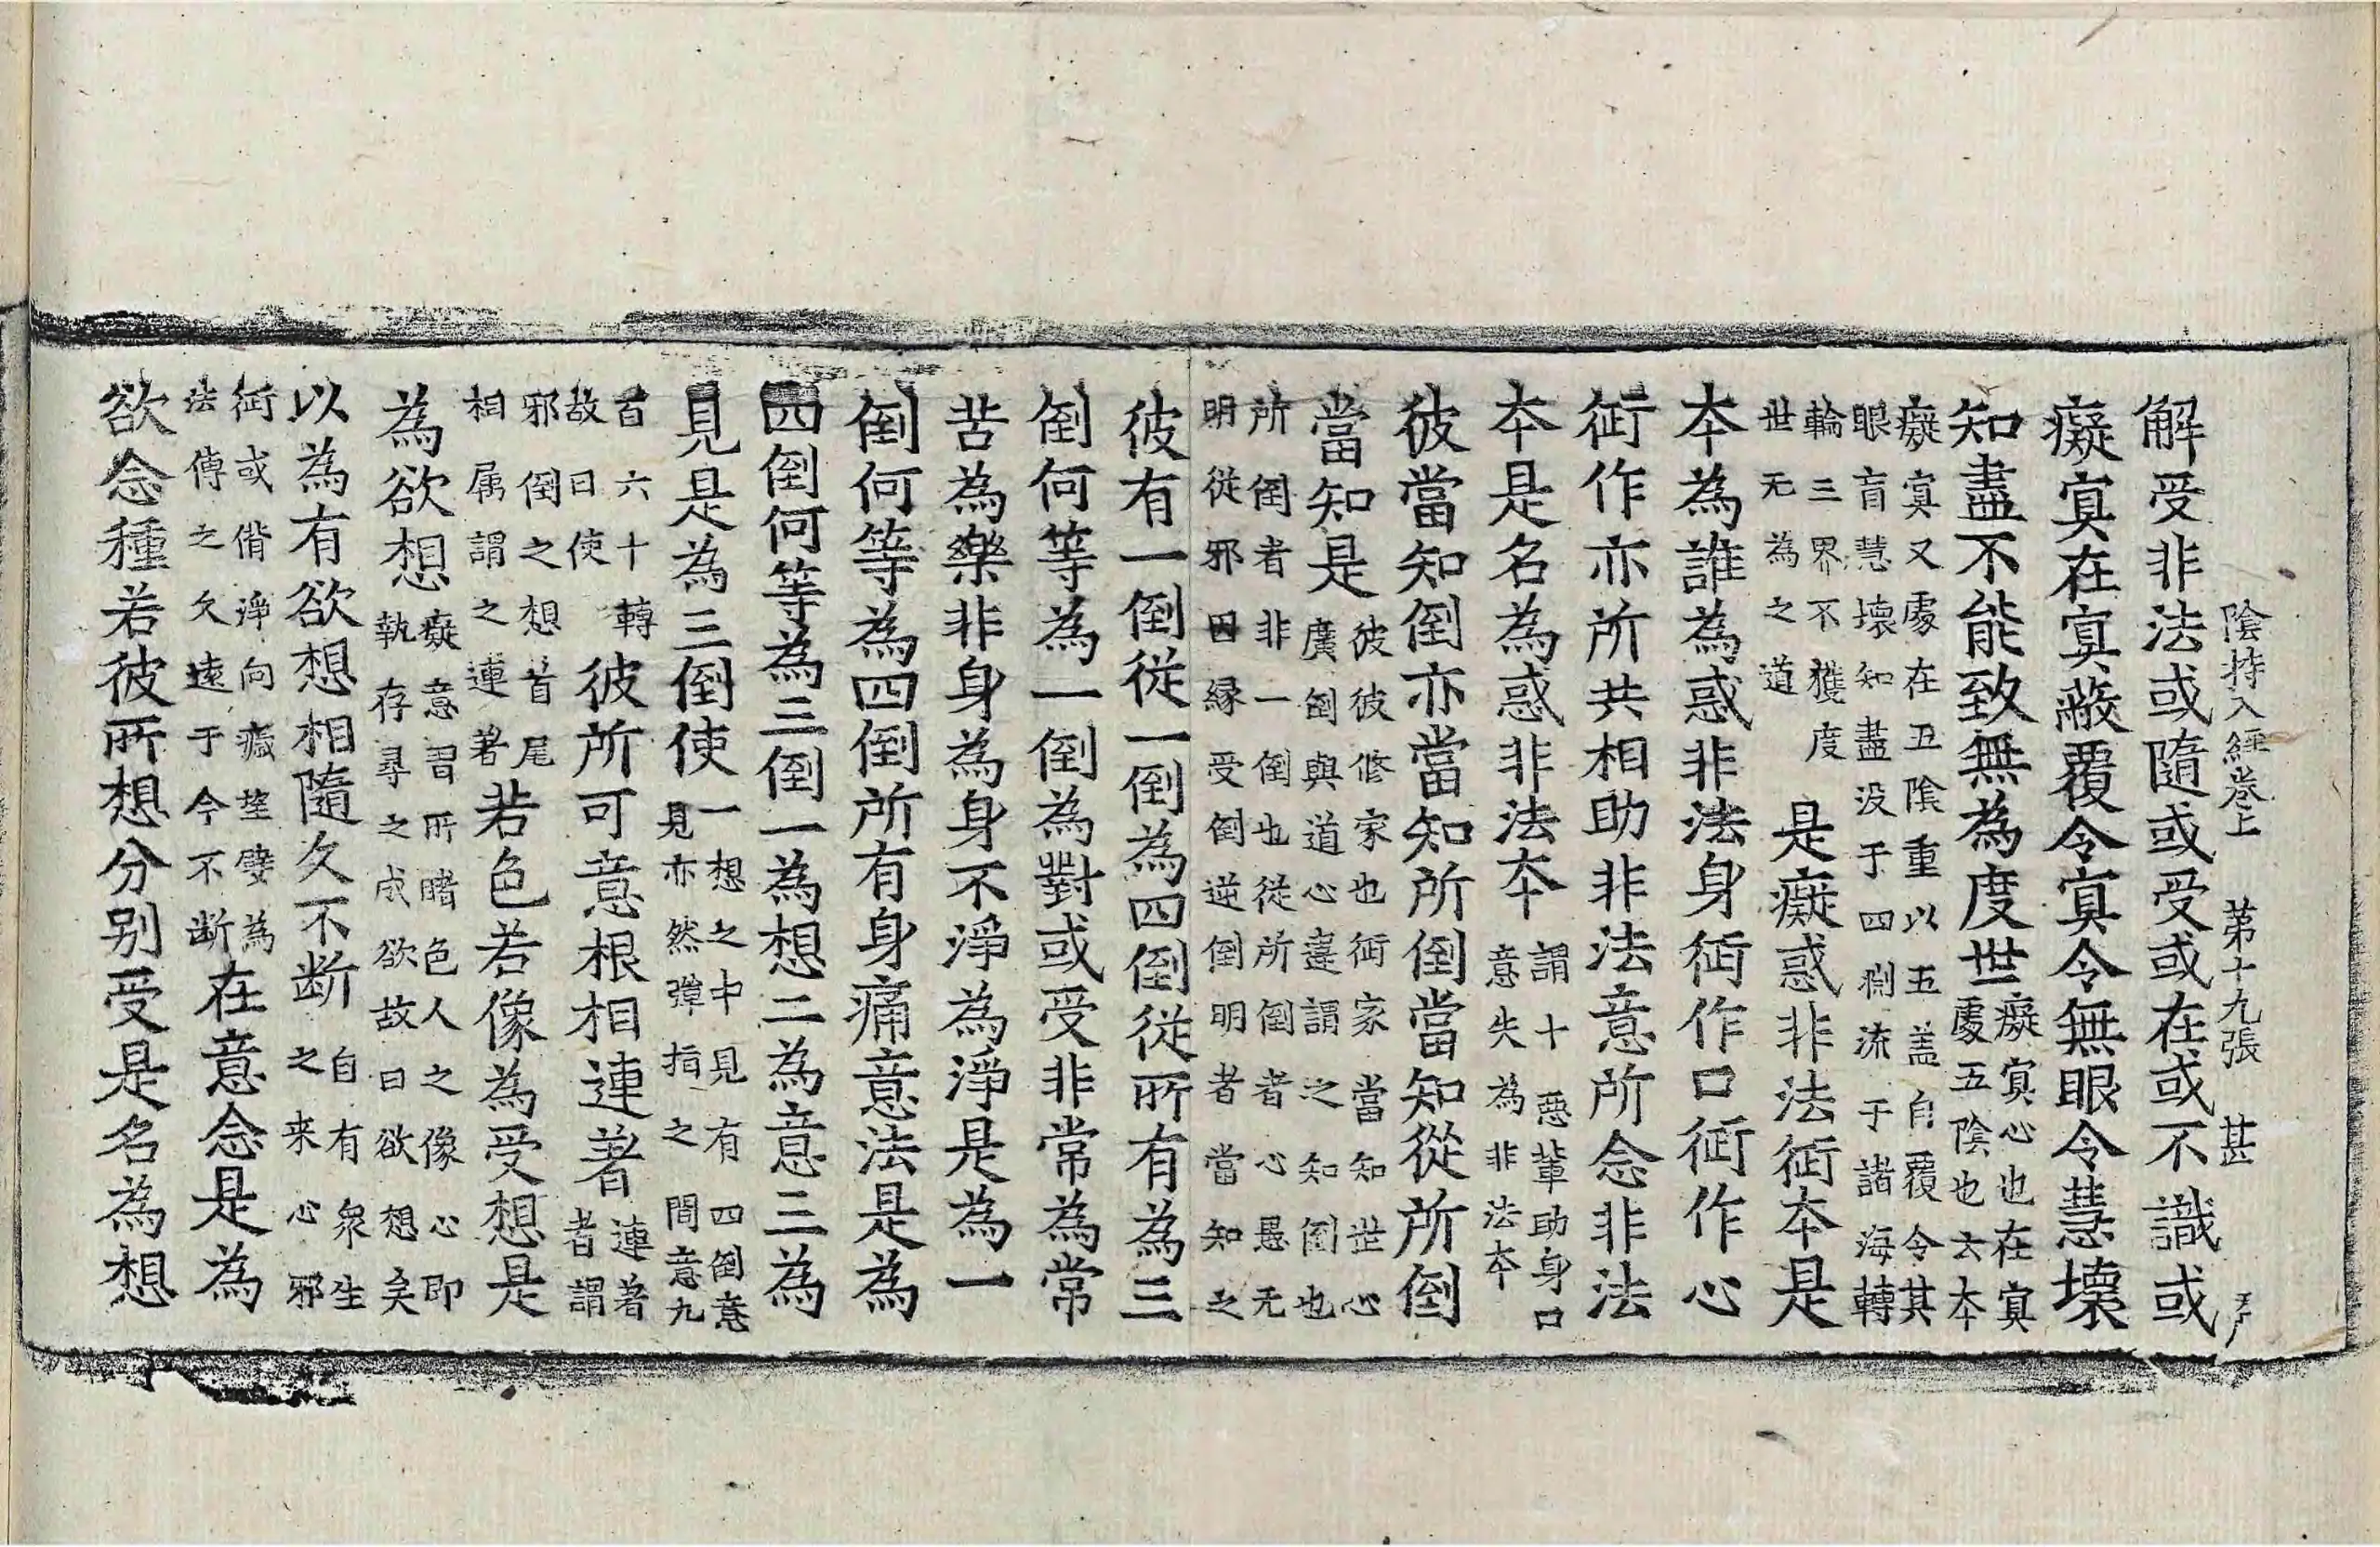 陰持入經卷上　第十九張　甚
解受非法或隨或受或在或不識或
癡㝠在㝠蔽覆令㝠令無眼令慧壞
知盡不能致無為度世
癡㝠心也在㝠
處五陰也去本
癡㝠又處在五陰重以五盖自覆令其
眼盲慧壞知盡没于四淵流于諸海轉
輪三界不獲度
世无為之道
是癡惑非法衒本是
本為誰為惑非法身衒作口衒作心
衒作亦所共相助非法意所念非法
本是名為惑非法本
謂十惡輩助身口
意失為非法本
彼當知倒亦當知所倒當知從所倒
當知是
彼彼修家也衒家當知世心
廣倒與道心違謂之知倒也
所倒者非一倒也從所倒者心愚无
明從邪因縁受倒逆倒明者當知之
彼有一倒從一倒為四倒從所有為三
倒何等為一倒為對或受非常為常
苦為樂非身為身不淨為淨是為一
倒何等為四倒所有身痛意法是為
四倒何等為三倒一為想二為意三為
見是為三倒使
一想之中見有四倒意
見亦然彈指之間意九
百六十轉
故曰使
彼所可意根相連著
連著
者謂
邪倒之想首尾
相屬謂之連著
若色若像為受想是
為欲想
癡意習所睹色人之像心即
執存尋之成欲故曰欲想矣
以為有欲想相隨久不断
自有衆生
之来心邪
衒或偕淨向癡墬孽為
法傳之久遠于今不断
在意念是為
欲念種若彼所想分别受是名為想